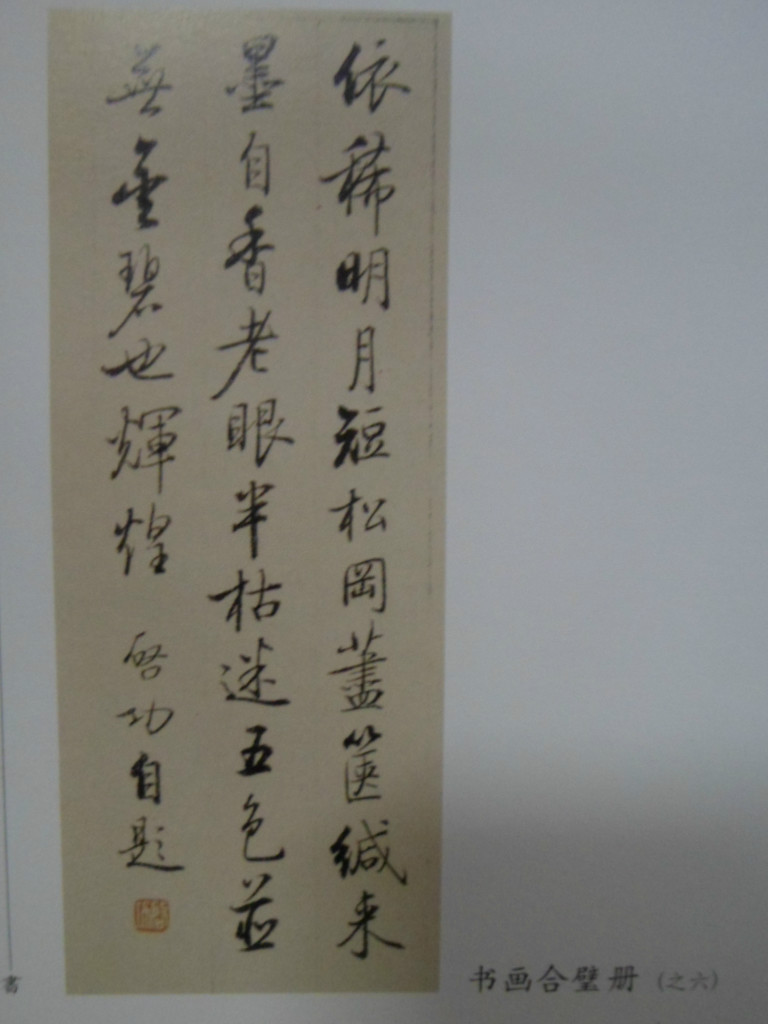 依稀明月短松岡藎篋緘来
墨自香老眼半枯迷五色並
無金碧也輝煌 啓功自題
书画合璧册（之六）